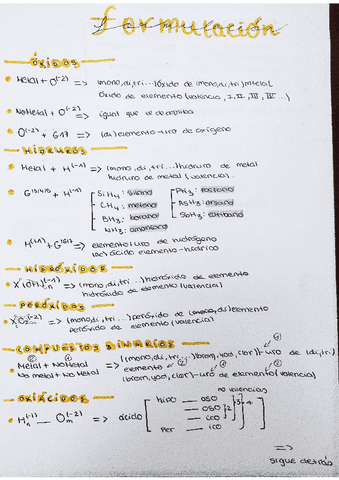 formulación
ÓXIDOS
Metal + O(-2) => (mono, di, tri...) óxido de (mono, di, tri) metal
óxido de elemento (valencia, I, II, III, IV...)
No Metal + O(-2) => igual que el de arriba
O(-2) + G17 => (di) elemento-uro de oxígeno
HIDRUROS
Metal + H(-1) => (mono, di, tri...) hidruro de metal
hidruro de metal (valencia).
G + H(-1) SiH4: silano PH3: fosfano
CH4: metano AsH3: arsano
BH3: borano SbH3: estibano
NH3: amoniaco
H(+1) + G => elemento-uro de hidrógeno
(ac) ácido elemento-hídrico
HIDRÓXIDOS
X(OH)n(-1) => (mono, di, tri...) hidróxido de elemento
hidróxido de elemento (valencia)
PERÓXIDOS
X2O2(-2) => (mono, di, tri...) peróxido de (mono, di) elemento
peróxido de elemento (valencia)
COMPUESTOS BINARIOS
Metal + No Metal => (mono, di, tri...) (brom, yod, clor)-uro de (di, tri)
No metal + No Metal elemento
(brom, yod, clor)-uro de elemento (valencia)
no valencias
OXIÁCIDOS
Hn(+1) — Om(-2) => ácido hipo — oso
— oso
— ico
per — ico
2 3 4
=>
sigue detrás